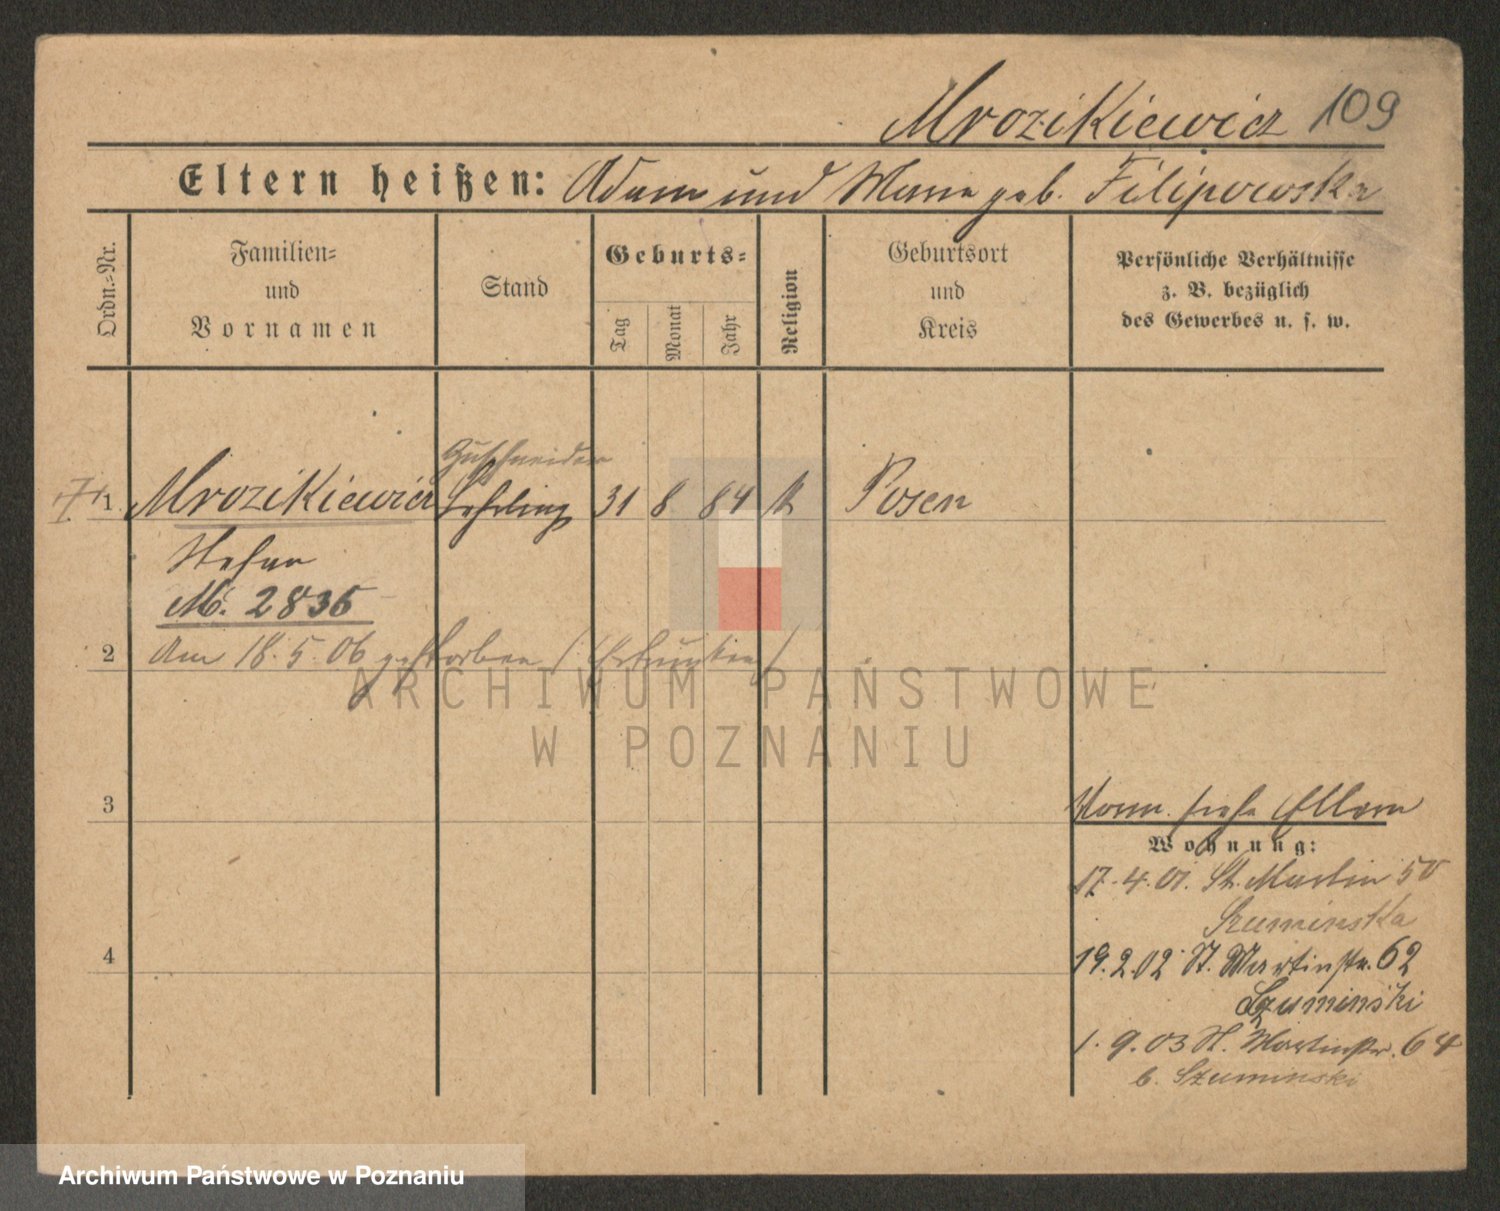 Mrozikiewicz 109
Eltern heißen: Adam und Marie geb. Filipowska
Ordn.-Nr.
Familien-
und
Vornamen
Stand
Geburts-
Tag
Monat
Jahr
Religion
Geburtsort
und
Kreis
Persönliche Verhältnisse
z. B. bezüglich
des Gewerbes u. s. w.
Zuschneider
1. Mrozikiewicz Lehrling 31 8 84 k Posen
Stefan
M. 2836
2 Am 18.5.06 gestorben
ARCHIWUM PAŃSTWOWE
W POZNANIU
3
Vorm. siehe Eltern
Wohnung:
17.4.01. St. Martin 50
Szuminska
4
19.2.02 St. Martinstr. 62
Szuminski
1.9.03 St. Martinstr. 64
b. Szuminski
Archiwum Państwowe w Poznaniu